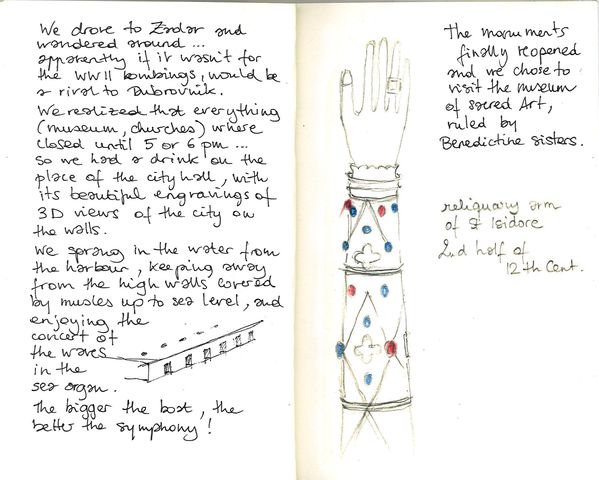 We drove to Zadar and
wandered around ...
apparently if it wasn't for
the WWII bombings, would be
a rival to Dubrovnik.
We realized that everything
(museum, churches) where
closed until 5 or 6 pm ...
So we had a drink on the
place of the city hall, with
its beautiful engravings of
3D views of the city on
the walls.
We sprang in the water from
the harbour, keeping away
from the high walls covered
by musles up to sea level, and
enjoying the
concert of
the waves
in the
sea organ.
The bigger the boat, the
better the symphony!
The monuments
finally reopened
and we chose to
visit the museum
of sacred Art,
ruled by
Benedictine sisters.
reliquary arm
of St Isidore
2nd half of
12th Cent.